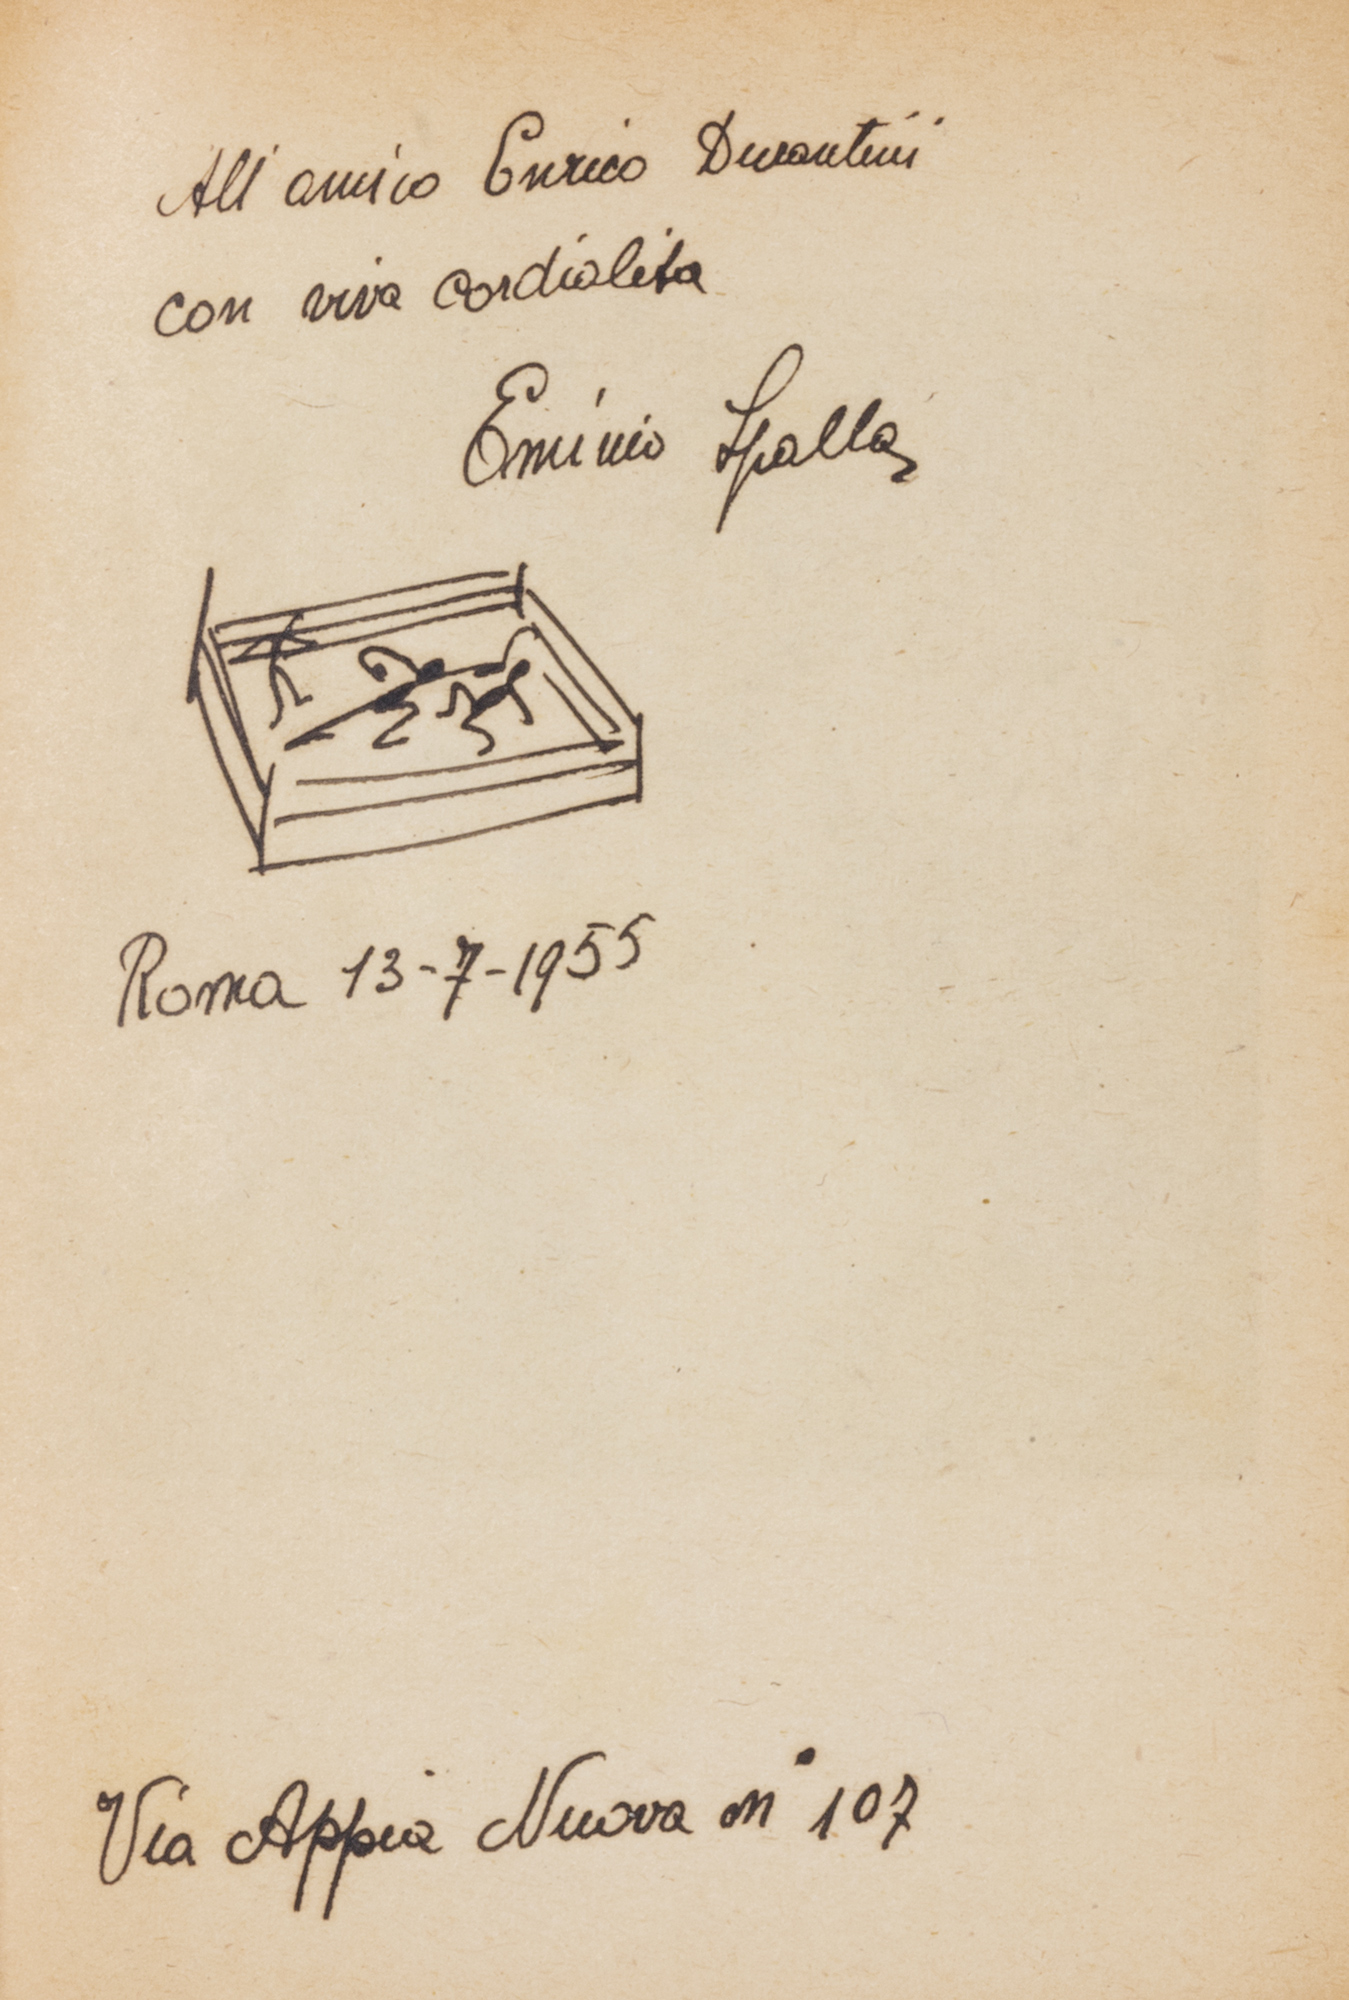 All'amico Enrico Durantini
con viva cordialita
Erminio Spalla
Roma 13-7-1955
Via Appia Nuova n° 107